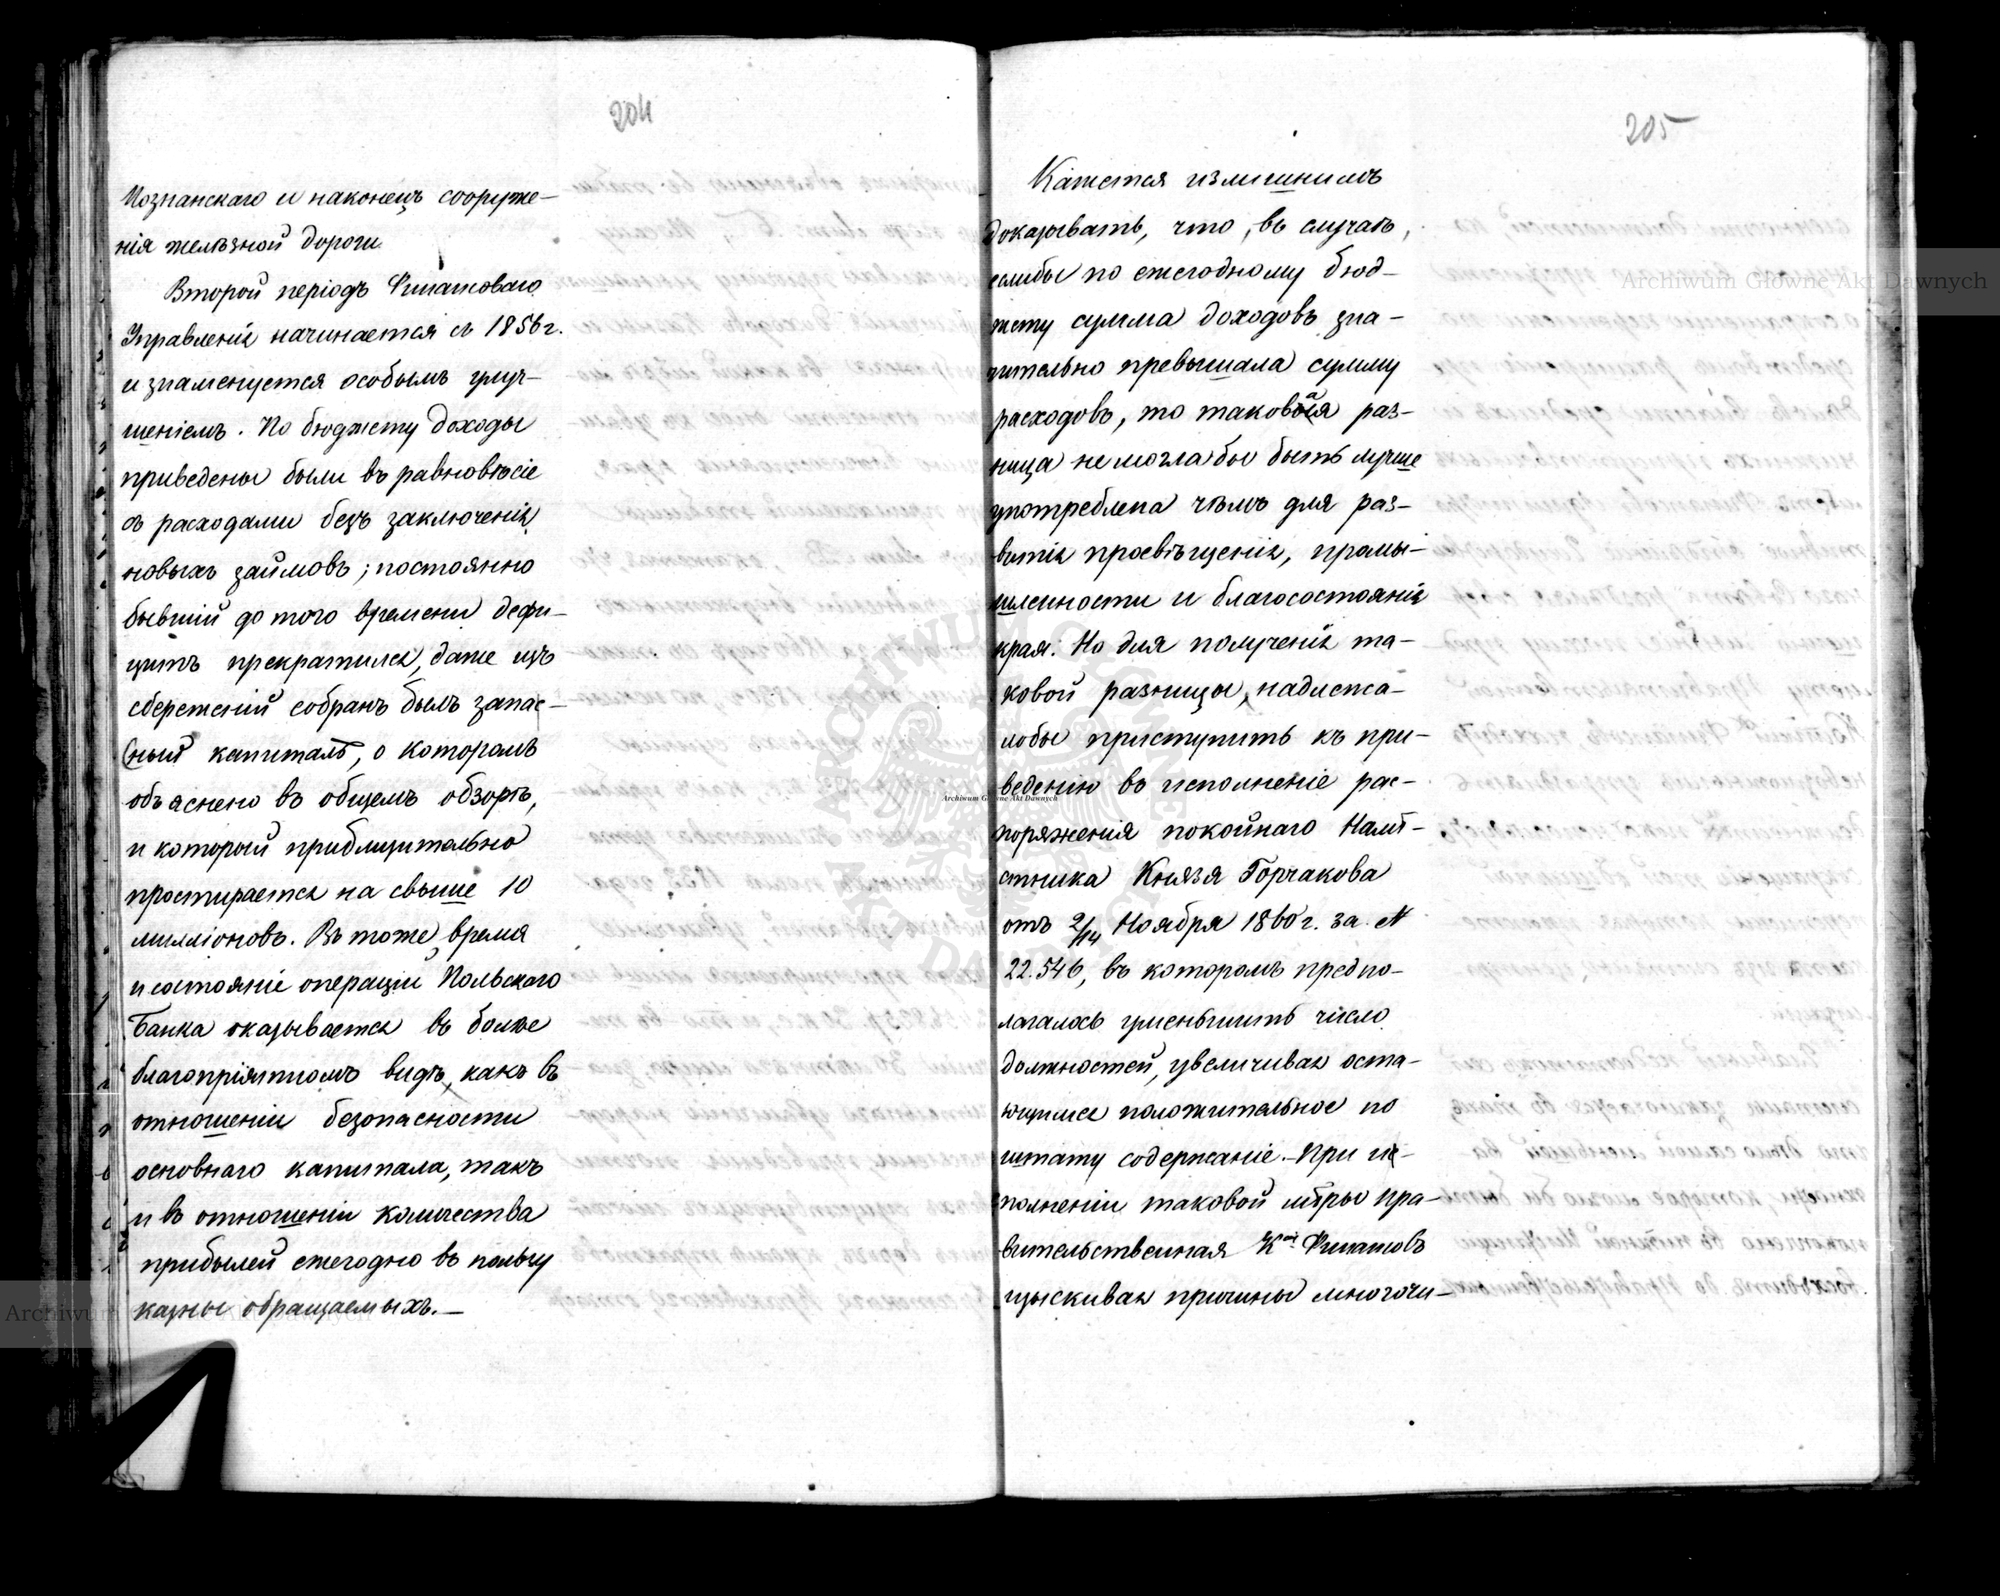 204
Познанскаго и наконецъ сооруже-
нія желѣзной дороги.
Второй періодъ Финансоваго
Управленія начинается съ 1856 г.
и знаменуется особымъ улуч-
шеніемъ. По бюджету доходы
приведены были въ равновѣсіе
съ расходами безъ заключенія
новыхъ займовъ; постоянно
бывшій до того времени дефи-
цитъ прекратился, даже изъ
сбереженій собранъ былъ запас-
ный капиталъ, о которомъ
объяснено въ общемъ обзорѣ,
и который приблизительно
простирается на свыше 10
милліоновъ. Въ тоже время
и состояніе операціи Польскаго
Банка оказывается въ болѣе
благопріятномъ видѣ, какъ въ
отношеніи безопасности
основнаго капитала, такъ
и въ отношеніи количества
прибылей ежегодно въ пользу
казны обращаемыхъ. —
205
Кажется излишнимъ
доказывать, что, въ случаѣ,
еслибы по ежегодному бюд-
жету сумма доходовъ зна-
чительно превышала сумму
расходовъ, то таковая раз-
ница не могла бы быть лучше
употреблена чѣмъ для раз-
витія просвѣщенія, промы-
шленности и благосостоянія
края. Но для полученія та-
ковой разницы, надлежа-
лобы приступить къ при-
ведению въ исполненіе рас-
поряженія покойнаго Намѣ-
стника Князя Горчакова
отъ 2/14 Ноября 1860 г. за №
22.546, въ которомъ предпо-
лагалось уменьшить число
должностей, увеличивая оста-
ющимся положительное по
штату содержаніе. — При ис-
полненіи таковой мѣры Пра-
вительственная Кои͠. Финансовъ
изыскивая причины многочи-
Archiwum Główne Akt Dawnych
Archiwum Główne Akt Dawnych
Archiwum Główne Akt Dawnych
ARCHIWUM GŁÓWNE AKT DAWNYCH